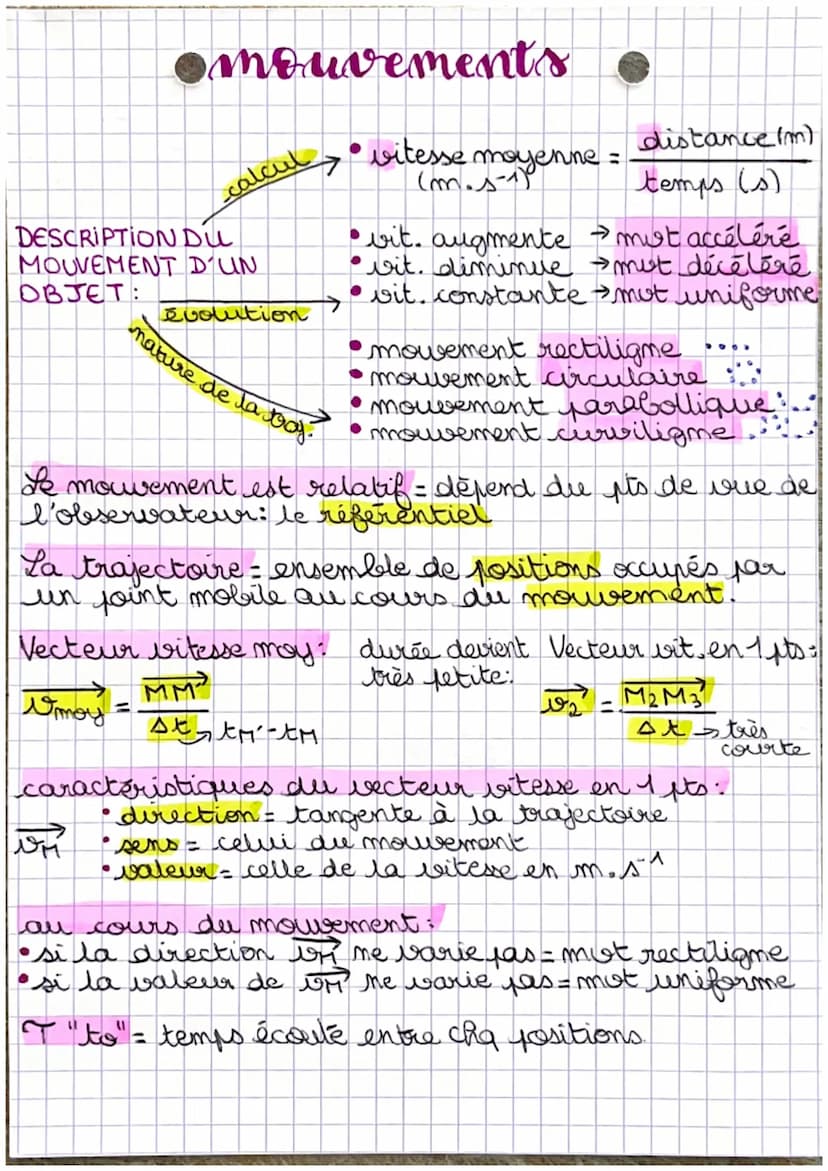 mouvements
calcul
• vitesse moyenne = distance (m) / temps (s)
(m.s⁻¹)
DESCRIPTION DU
MOUVEMENT D'UN
OBJET:
évolution
• vit. augmente → mvt accéléré
• vit. diminue → mvt décéléré
• vit. constante → mvt uniforme
nature de la traj.
• mouvement rectiligne
• mouvement circulaire
• mouvement parabollique
• mouvement curviligne
Le mouvement est relatif = dépend du pts de vue de
l'observateur: le référentiel
La trajectoire = ensemble de positions occupés par
un point mobile au cours du mouvement.
Vecteur vitesse moy:
durée devient
très petite:
Vecteur vit. en 1 pts:
v⃗moy = MM'⃗ / Δt → tM' - tM
v⃗2 = M2M3⃗ / Δt → très
courte
caractéristiques du vecteur vitesse en 1 pts:
• direction = tangente à la trajectoire
v⃗M • sens = celui du mouvement
• valeur = celle de la vitesse en m.s⁻¹
au cours du mouvement:
• si la direction v⃗M ne varie pas = mvt rectiligne
• si la valeur de v⃗M ne varie pas = mvt uniforme
T "to" = temps écoulé entre chq positions.